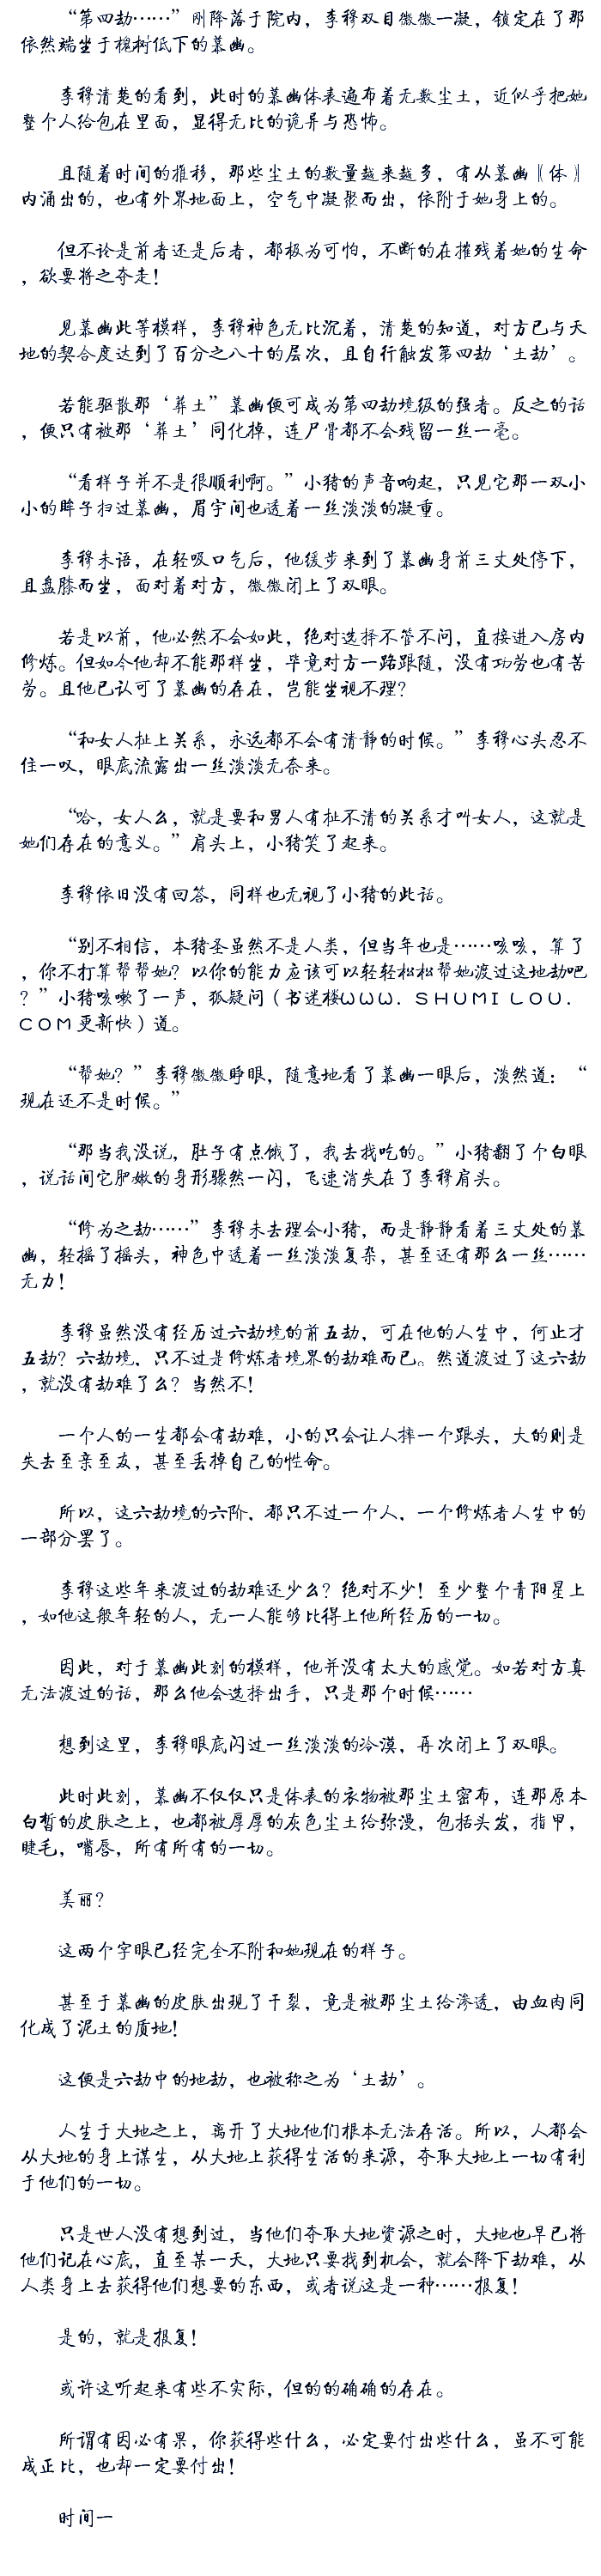 “第四劫……”刚降落于院内，李穆双目微微一凝，锁定在了那
依然端坐于槐树低下的慕幽。
李穆清楚的看到，此时的慕幽体表遍布着无数尘土，近似乎把她
整个人给包在里面，显得无比的诡异与恐怖。
且随着时间的推移，那些尘土的数量越来越多，有从慕幽〖体〗
内涌出的，也有外界地面上，空气中凝聚而出，依附于她身上的。
但不论是前者还是后者，都极为可怕，不断的在摧残着她的生命
，欲要将之夺走！
见慕幽此等模样，李穆神色无比沉着，清楚的知道，对方已与天
地的契合度达到了百分之八十的层次，且自行触发第四劫‘土劫’。
若能驱散那‘葬土”慕幽便可成为第四劫境级的强者。反之的话
，便只有被那‘葬土’同化掉，连尸骨都不会残留一丝一毫。
“看样子并不是很顺利啊。”小猪的声音响起，只见它那一双小
小的眸子扫过慕幽，眉宇间也透着一丝淡淡的凝重。
李穆未语，在轻吸口气后，他缓步来到了慕幽身前三丈处停下，
且盘膝而坐，面对着对方，微微闭上了双眼。
若是以前，他必然不会如此，绝对选择不管不问，直接进入房内
修炼。但如今他却不能那样坐，毕竟对方一路跟随，没有功劳也有苦
劳。且他已认可了慕幽的存在，岂能坐视不理？
“和女人扯上关系，永远都不会有清静的时候。”李穆心头忍不
住一叹，眼底流露出一丝淡淡无奈来。
“哈，女人么，就是要和男人有扯不清的关系才叫女人，这就是
她们存在的意义。”肩头上，小猪笑了起来。
李穆依旧没有回答，同样也无视了小猪的此话。
“别不相信，本猪圣虽然不是人类，但当年也是……咳咳，算了
，你不打算帮帮她？以你的能力应该可以轻轻松松帮她渡过这地劫吧
？”小猪咳嗽了一声，狐疑问（书迷楼ＷＷＷ．ＳＨＵＭＩＬＯＵ．
ＣＯＭ更新快）道。
“帮她？”李穆微微睁眼，随意地看了慕幽一眼后，淡然道：“
现在还不是时候。”
“那当我没说，肚子有点饿了，我去找吃的。”小猪翻了个白眼
，说话间它肥嫩的身形骤然一闪，飞速消失在了李穆肩头。
“修为之劫……”李穆未去理会小猪，而是静静看着三丈处的慕
幽，轻摇了摇头，神色中透着一丝淡淡复杂，甚至还有那么一丝……
无力！
李穆虽然没有经历过六劫境的前五劫，可在他的人生中，何止才
五劫？六劫境，只不过是修炼者境界的劫难而已。然道渡过了这六劫
，就没有劫难了么？当然不！
一个人的一生都会有劫难，小的只会让人摔一个跟头，大的则是
失去至亲至友，甚至丢掉自己的性命。
所以，这六劫境的六阶，都只不过一个人，一个修炼者人生中的
一部分罢了。
李穆这些年来渡过的劫难还少么？绝对不少！至少整个青阳星上
，如他这般年轻的人，无一人能够比得上他所经历的一切。
因此，对于慕幽此刻的模样，他并没有太大的感觉。如若对方真
无法渡过的话，那么他会选择出手，只是那个时候……
想到这里，李穆眼底闪过一丝淡淡的冷漠，再次闭上了双眼。
此时此刻，慕幽不仅仅只是体表的衣物被那尘土密布，连那原本
白皙的皮肤之上，也都被厚厚的灰色尘土给弥漫，包括头发，指甲，
睫毛，嘴唇，所有所有的一切。
美丽？
这两个字眼已经完全不附和她现在的样子。
甚至于慕幽的皮肤出现了干裂，竟是被那尘土给渗透，由血肉同
化成了泥土的质地！
这便是六劫中的地劫，也被称之为‘土劫’。
人生于大地之上，离开了大地他们根本无法存活。所以，人都会
从大地的身上谋生，从大地上获得生活的来源，夺取大地上一切有利
于他们的一切。
只是世人没有想到过，当他们夺取大地资源之时，大地也早已将
他们记在心底，直至某一天，大地只要找到机会，就会降下劫难，从
人类身上去获得他们想要的东西，或者说这是一种……报复！
是的，就是报复！
或许这听起来有些不实际，但的的确确的存在。
所谓有因必有果，你获得些什么，必定要付出些什么，虽不可能
成正比，也却一定要付出！
时间一